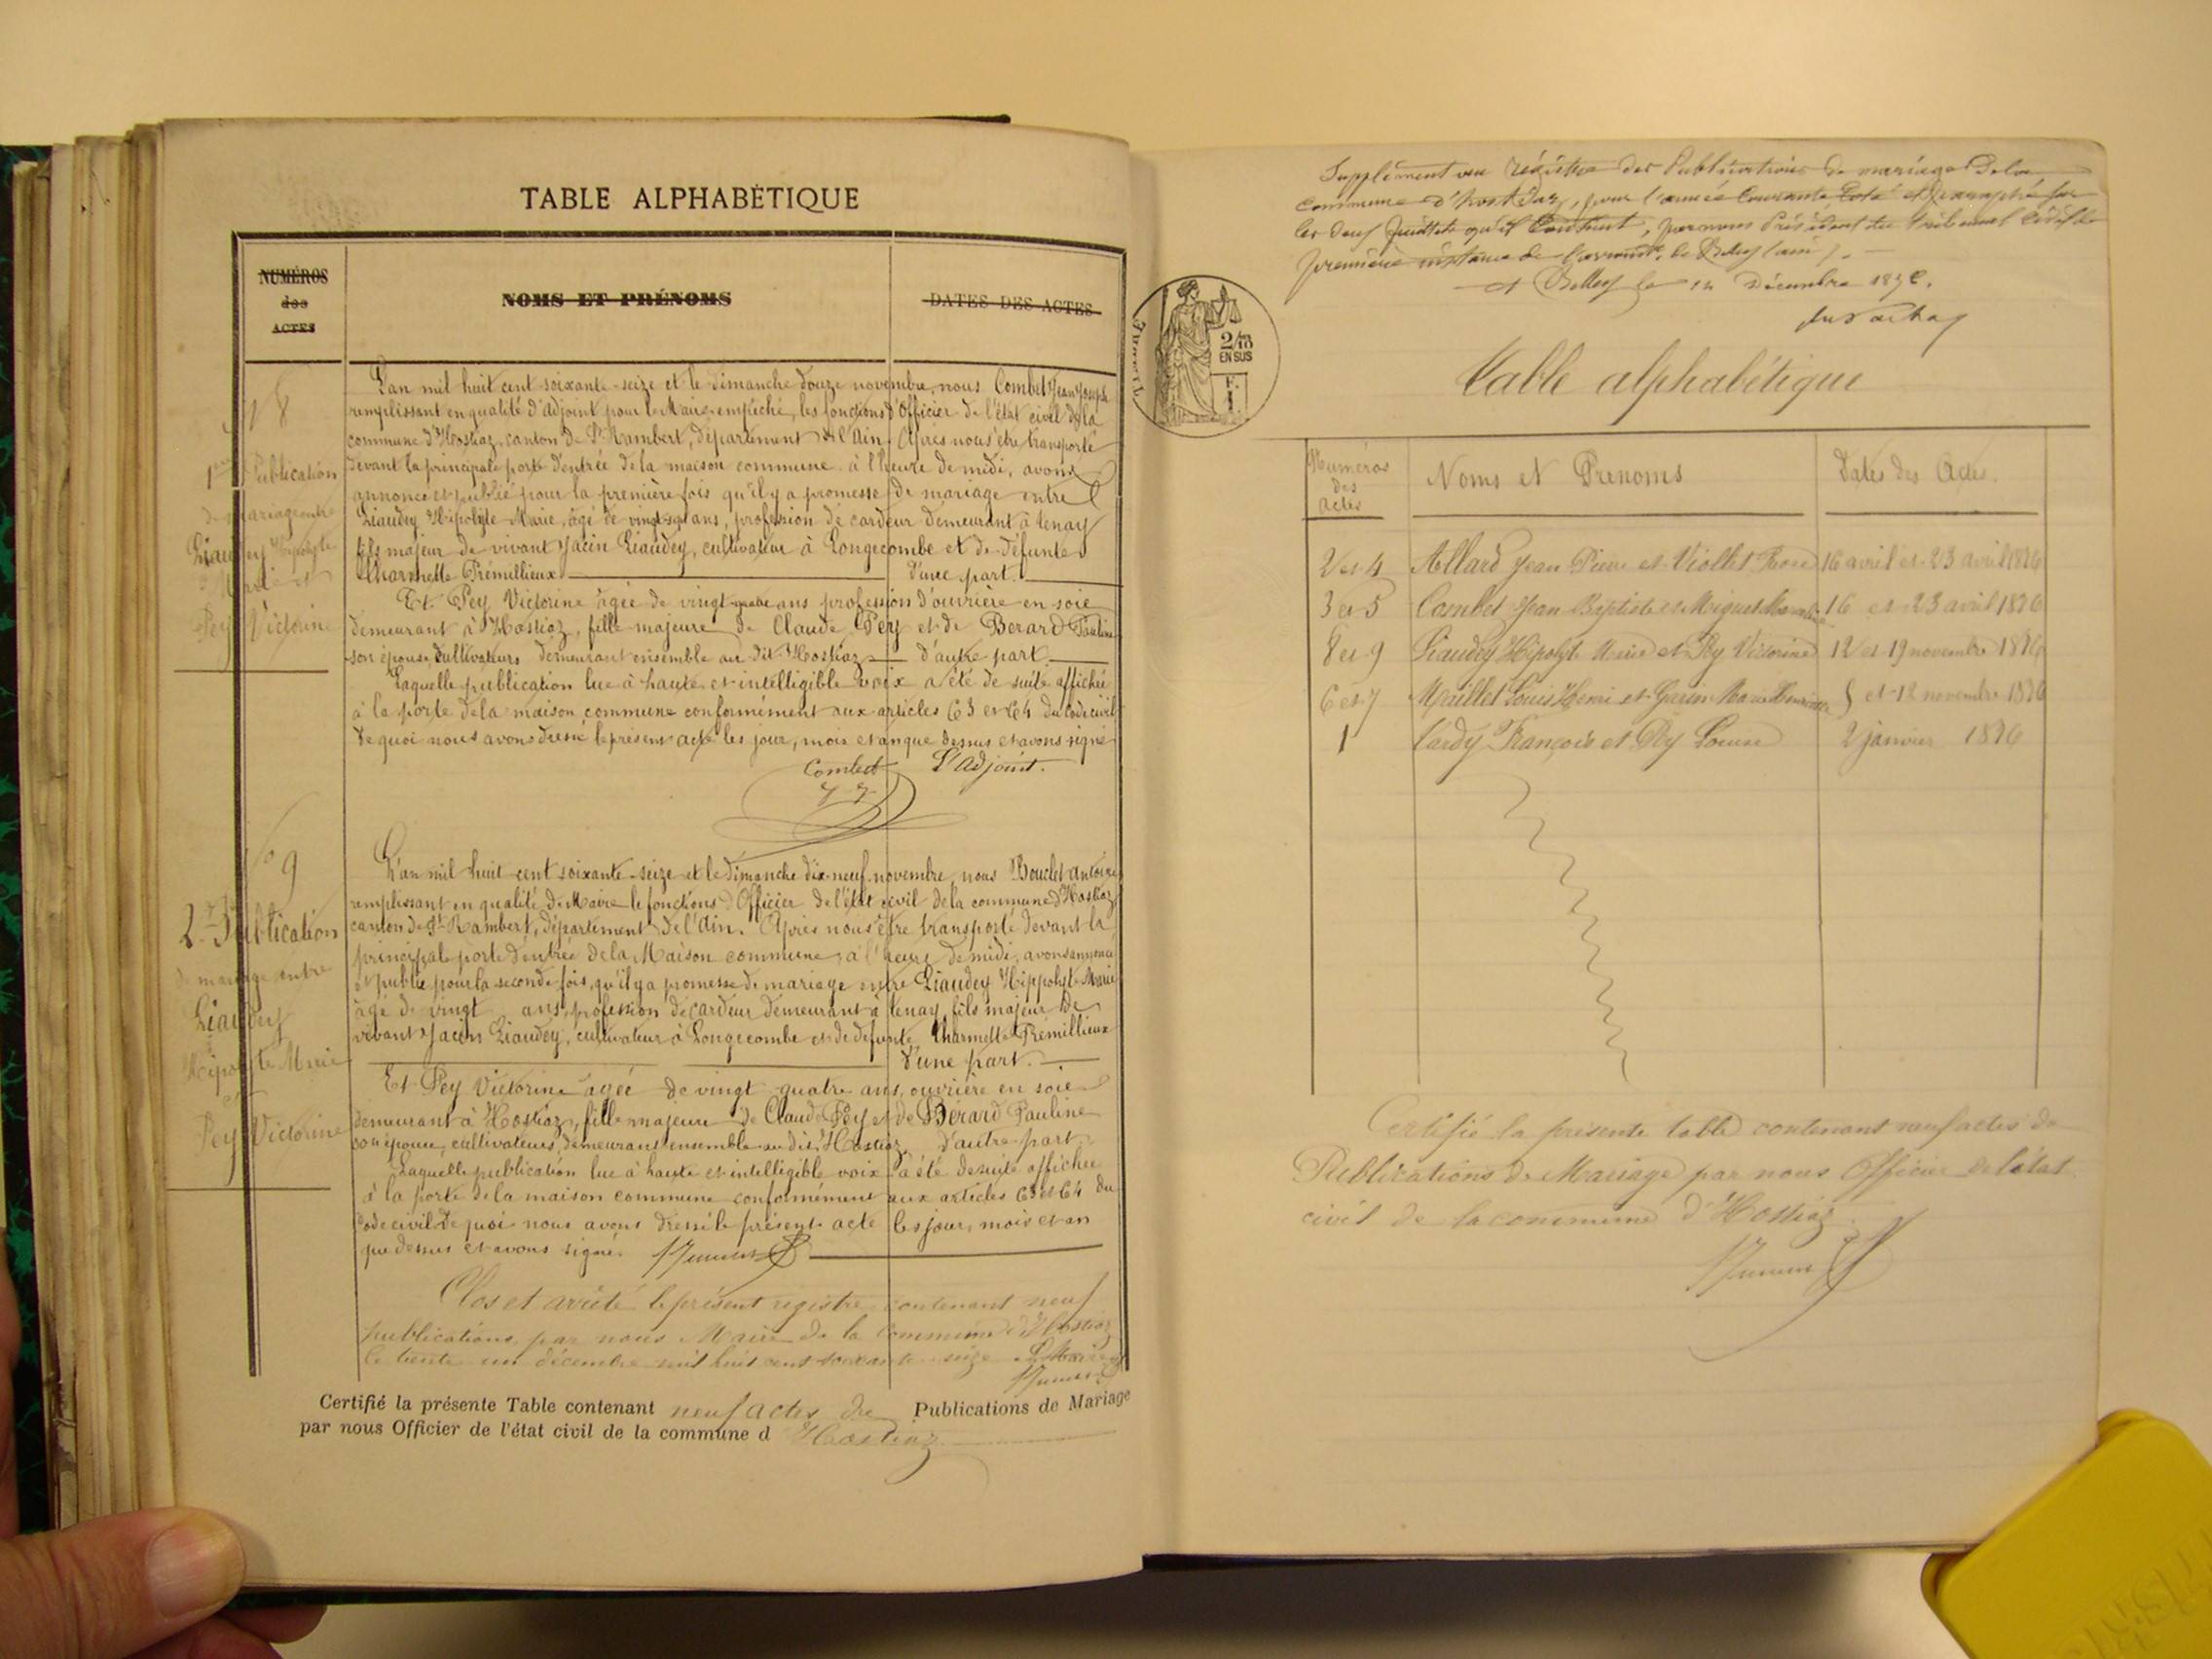 TABLE ALPHABÉTIQUE
NUMÉROS
des
ACTES
NOMS ET PRÉNOMS
DATES DES ACTES
8
1ère Publication
de mariage entre
Liaudey Hipolyte
Marie et
Pey Victorine
L'an mil huit cent soixante-seize et le dimanche douze novembre, nous Combet Jean Joseph
remplissant en qualité d'adjoint pour le Maire empêché, les fonctions d'Officier de l'état civil de la
commune d'Hostiaz, canton de St Rambert, département de l'Ain. Après nous être transporté
devant la principale porte d'entrée de la maison commune à l'heure de midi, avons
annoncé et publié pour la première fois qu'il y a promesse de mariage entre
Liaudey Hipolyte Marie, âgé de vingt-sept ans, profession de cardeur demeurant à tenay
fils majeur de vivant Jacin Liaudey, cultivateur à Longecombe et de défunte
Charmette Prémillieux d'une part.
Et Pey Victorine agée de vingt-quatre ans profession d'ouvrière en soie
demeurant à Hostiaz, fille majeure de Claude Pey et de Berard Pauline
son épouse, cultivateurs demeurant ensemble au dit Hostiaz d'autre part.
Laquelle publication lue à haute et intelligible voix a été de suite affichée
à la porte de la maison commune conformément aux articles 63 et 64 du Code civil
de quoi nous avons dressé le présent acte les jour, mois et an que dessus et avons signé
Combet L'Adjoint.
No 9
2e Publication
de mariage entre
Liaudey
Hipolyte Marie
et
Pey Victorine
L'an mil huit cent soixante-seize et le dimanche dix-neuf novembre, nous Bouclet Antoine
remplissant en qualité de Maire le fonctions d'Officier de l'état civil de la commune d'Hostiaz
canton de St Rambert, département de l'Ain. Après nous être transporté devant la
principale porte d'entrée de la Maison commune, à l'heure de midi, avons annoncé
et publié pour la seconde fois, qu'il y a promesse de mariage entre Liaudey Hippolyte Marie
âgé de vingt ans, profession de cardeur demeurant à tenay, fils majeur de
vivant Jacin Liaudey, cultivateur à Longecombe et de défunte Charmette Prémillieux
d'une part.
Et Pey Victorine agée de vingt quatre ans, ouvrière en soie
demeurant à Hostiaz, fille majeure de Claude Pey et de Bérard Pauline
son épouse, cultivateurs, demeurant ensemble au dit Hostiaz d'autre part.
Laquelle publication lue à haute et intelligible voix a été de suite affichée
à la porte de la maison commune conformément aux articles 63 et 64 du
Code civil de quoi nous avons dressé le présent acte les jour, mois et an
que dessus et avons signé.
Clos et arrêté le présent registre contenant neuf
publications par nous Maire de la commune d'Hostiaz
le trente un décembre mil huit cent soixante-seize Le Maire
Certifié la présente Table contenant neuf actes de Publications de Mariage
par nous Officier de l'état civil de la commune d Hostiaz
2/10
EN SUS
F.
1
Supplément au régistre des Publications de mariage de la
commune d'hostiaz, pour l'année courante Coté et paraphé sur
les deux feuillets qu'il contient, par nous Président du tribunal civil de
première instance de l'arrondt. de Belley (ain).
A Belley le 14 Décembre 1876.
Table alphabétique
Numéros
des
actes
Noms et Prenoms
Dates des Actes.
2 et 4 Allard Jean Pierre et Viollet Rose 16 avril et 23 avril 1876
3 et 5 Combet Jean Baptiste et Miguet 16 et 23 avril 1876
8 et 9 Liaudey Hipolyte Marie et Pey Victorine 12 et 19 novembre 1876
6 et 7 Maillet Louis Henri et Marie 5 et 12 novembre 1876
1 Tardy François et Pey Louise 2 janvier 1876
Certifié la présente table contenant neuf actes de
Publications de Mariage par nous Officier de l'état
civil de la commune d'Hostiaz